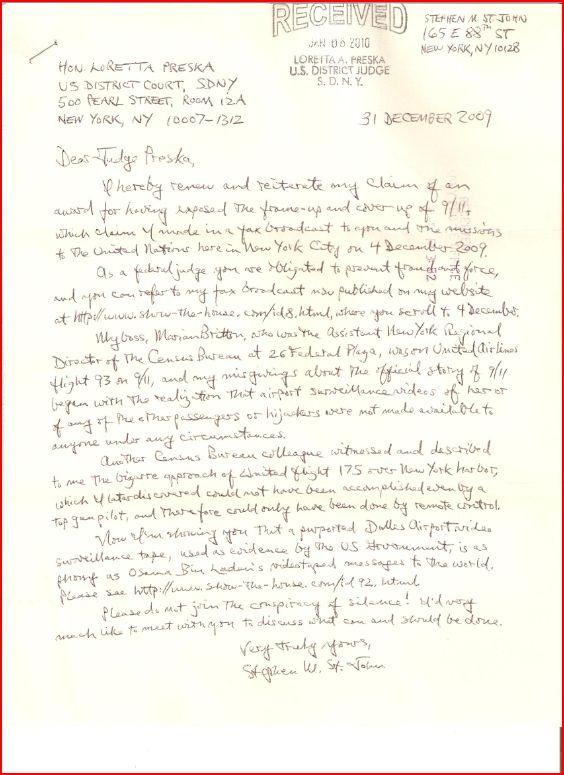 RECEIVED
JAN 06 2010
LORETTA A. PRESKA
U.S. DISTRICT JUDGE
S. D. N. Y.
STEPHEN M. ST. JOHN
165 E 88TH ST
NEW YORK, NY 10128
HON. LORETTA PRESKA
US DISTRICT COURT, SDNY
500 PEARL STREET, ROOM 12A
NEW YORK, NY 10007-1312
31 DECEMBER 2009
Dear Judge Preska,
I hereby renew and reiterate my claim of an
award for having exposed the frame-up and cover up of 9/11,
which claim I made in a fax broadcast to you and the missions
to the United Nations here in New York City on 4 December 2009.
As a federal judge you are obligated to prevent fraudulent force,
and you can refer to my fax broadcast now published on my website
at http://www.show-the-house.com/id8.html, where you scroll to 4 December.
My boss, Marian Britton, who was the Assistant New York Regional
Director of the Census Bureau at 26 Federal Plaza, was on United Airlines
flight 93 on 9/11, and my misgivings about the official story of 9/11
began with the realization that airport surveillance videos of her or
of any of the other passengers or hijackers were not made available to
anyone under any circumstances.
Another Census Bureau colleague witnessed and described
to me the bizarre approach of United flight 175 over New York harbor,
which I later discovered could not have been accomplished even by a
top gun pilot, and therefore could only have been done by remote control.
Now I'm showing you that a purported Dulles Airport video
surveillance tape, used as evidence by the US Government, is as
phony as Osama Bin Laden's videotaped messages to the world.
Please see http://www.show-the-house.com/id92.html
Please do not join the conspiracy of silence! I'd very
much like to meet with you to discuss what can and should be done.
Very truly yours,
Stephen M. St. John